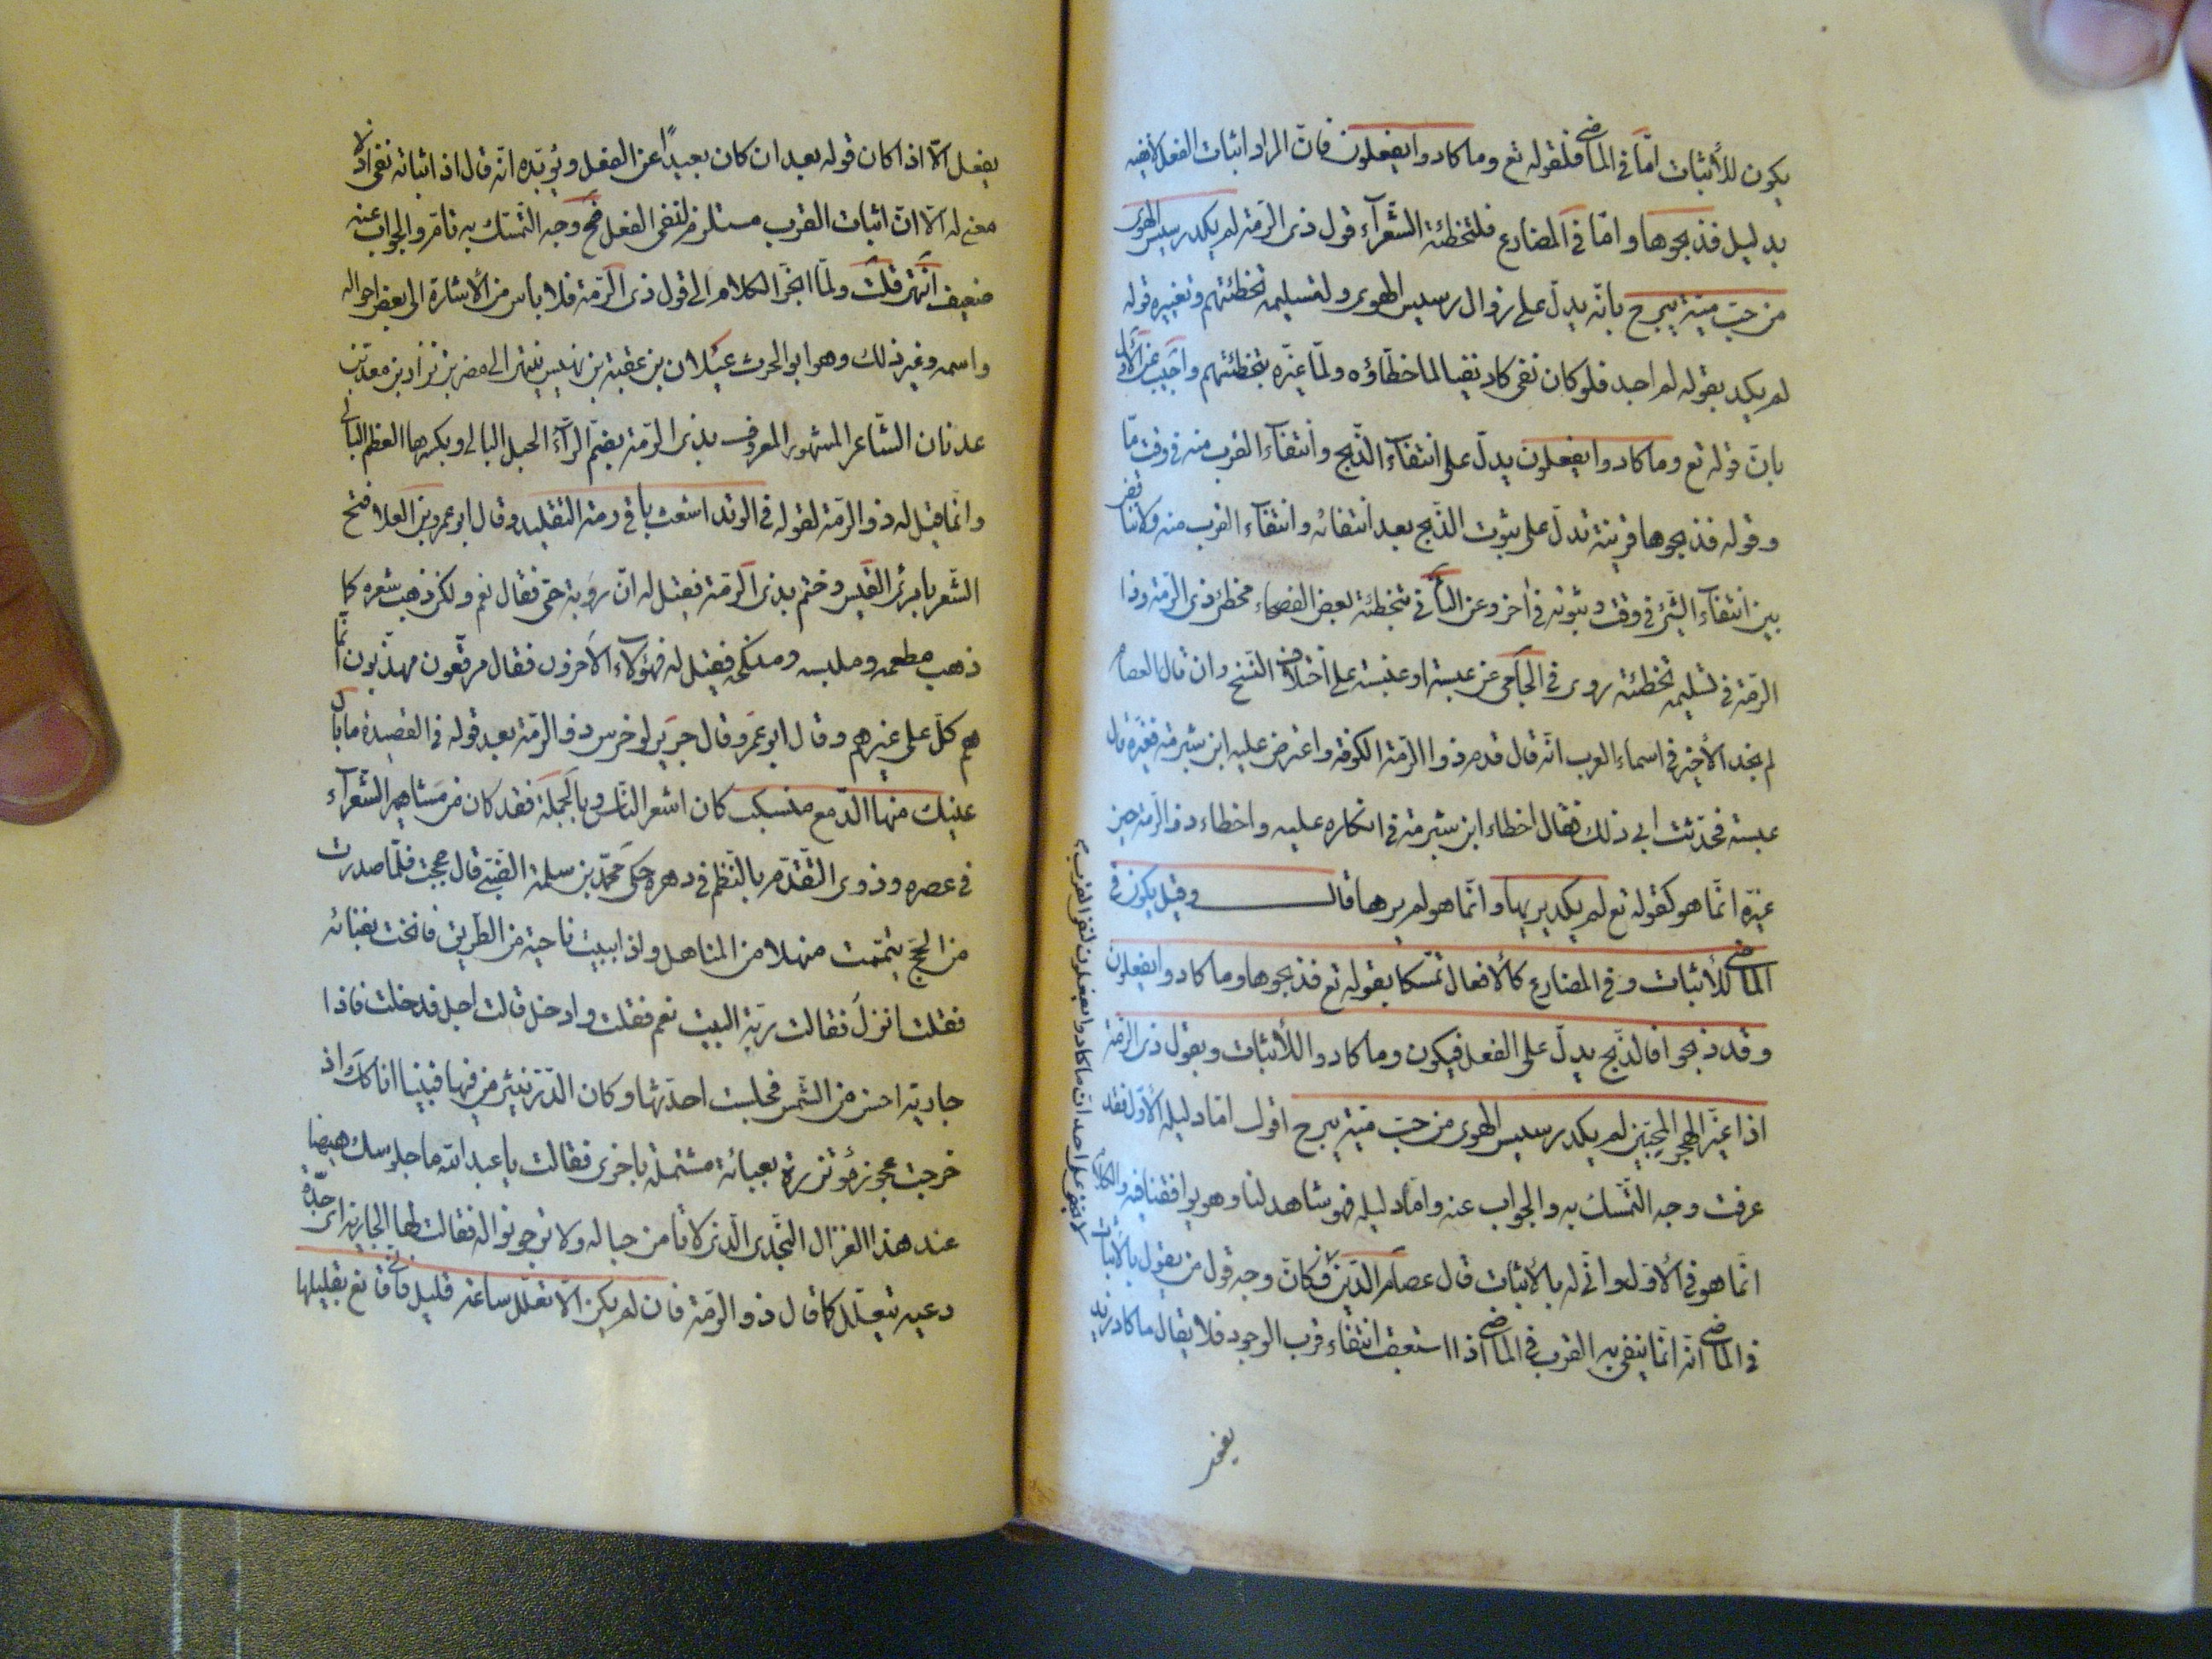 يكون للأثبات امّا فى الماضى فلقوله تع وما كادوا يفعلون فانّ المراد اثبات الفعل لانفيه
بدليل فذبحوها وامّا فى المضارع فلتخطئة الشّعرآء قول ذى الرّمة لم يكد رسيس الهوى
من حبّ ميّة يبرح بانّه يدلّ على زوال رسيس الهوى ولتسليمه تخطئتهم وتغييره قوله
لم يكد بقوله لم اجد فلو كان نفى كاد نفيا لما خطّاؤه ولمّا غيّره بتخطئتهم واجيب عن الاوّل
بانّ قوله تع وما كادوا يفعلون يدلّ على انتفآء الذّبح وانتفآء القرب منه فى وقت مّا
وقوله فذبحوها قرينة تدلّ على ثبوت الذّبح بعد انتفائه وانتفآء القرب منه ولاتناقض
بين انتفآء الشّئ فى وقت وثبوته فى اخر وعن الثّانى بتخطئة بعض الفصحاء مخطئ ذى الرّمة وذا
الرّمة فى تسليمه تخطئته روى فى الجامى عن عبسة او عنبسة على اختلاف النّسخ وان قال العصام
لم نجد الأخير فى اسماء العرب انّه قال قدم ذوا الرّمة الكوفة واعترض عليه ابن شبرمة فغيّره قال
عبسة فحدّثت ابى ذلك فقال اخطاء ابن شبرمة فى انكاره عليه واخطاء ذو الرّمة حين
غيّره انّما هو كقوله تع لم يكد يريها وانّما هو لم يرها قال وقيل يكون فى
الماضى للأثبات وفى المضارع كالأفعال تمسّكا بقوله تع فذبحوها وما كادوا يفعلون
وقد ذبحوا فالذّبح يدلّ على الفعل فيكون وما كادوا للأثبات وبقول ذى الرّمة
اذا غيّر الهجر المحبّين لم يكد رسيس الهوى من حبّ ميّة يبرح اقول امّا دليله الأوّل فقد
عرفت وجه التّمسّك به والجواب عنه وامّا دليله فهو شاهد لنا وهو يوافقنا فيه والكلام
انّما هو فى الأوّل وانّى له بالأثبات قال عصام الدّين فكانّ وجه قول من يقول بالأثبات
فى الماضى انّه انّما ينفى به القرب فى الماضى اذا استعقب انتفاء قرب الوجود فلا يقال ما كاد زيد
يفعل
لا نفى على احد انّ ما كادوا يفعلون لنفى القرب
يفعل الّا اذا كان قوله بعد ان كان بعيدًا عن الفعل ويؤيّده انّه قال اذ اثباته نفى اذ لا
معنى له الّا انّ اثبات القرب مستلزم لنفى الفعل فح وجه التّمسّك به تامّ والجواب عنه
ضعيف انتهى قلت ولمّا انجرّ الكلام الى قول ذى الرّمة فلا بأس من الأشارة الى بعض احواله
واسمه وغير ذلك وهو ابو الحرث غيلان بن عقبة بن نهيس ينتهى الى مضر بن نزار بن معد بن
عدنان الشّاعر المشهور المعروف بذى الرّمة بضمّ الرّآء الحبل البالى وبكسرها العظم البالى
وانّما قيل له ذو الرّمة لقوله فى الوتد اشعث باقى رمّة التّقليد وقال ابو عمرو بن العلا فتح
الشّعر بامرئ القيس وختم بذى الرّمة فقيل له انّ رؤبة حى فقال نعم ولكن ذهب شعره كما
ذهب مطعمه وملبسه ومنكحه فقيل له فهؤلاء الآخرون فقال مرقّعون مهذّبون انّما
هم كلّ على غيرهم وقال ابو عمرو قال جرير لو خرس ذو الرّمة بعد قوله فى القصيدة ما بال
عينك منها الدّمع منسكب كان اشعر النّاس وبالجملة فقد كان من مشاهير الشّعرآء
فى عصره وذوى التّقدّم بالنّظم فى دهره حكى محمّد بن سلمة الضّبّى قال حججت فلمّا صدرت
من الحجّ تيمّمت منهلا من المناهل واذا ببيت ناحية من الطّريق فانخت بفنائه
فقلت انزل فقالت ربّة البيت نعم فقلت وادخل قالت اجل فدخلت فاذا
جارية احسن من الشّمس فجلست احدّثها وكان الدّرّ ينثر من فيها فبينا انا كك اذ
خرجت عجوز مؤتزرة بعبائة مشتملة باخرى فقالت يا عبد الله ما جلوسك هيهنا
عند هذا الغزال النّجدى الّذى لا تأمن حباله ولا ترجو نواله فقالت لها الجارية اى جدّه
دعيه يتعلّل كما قال ذو الرّمة فان لم يكن الّا تعلّل ساعة قليل فانى قانع بقليلها